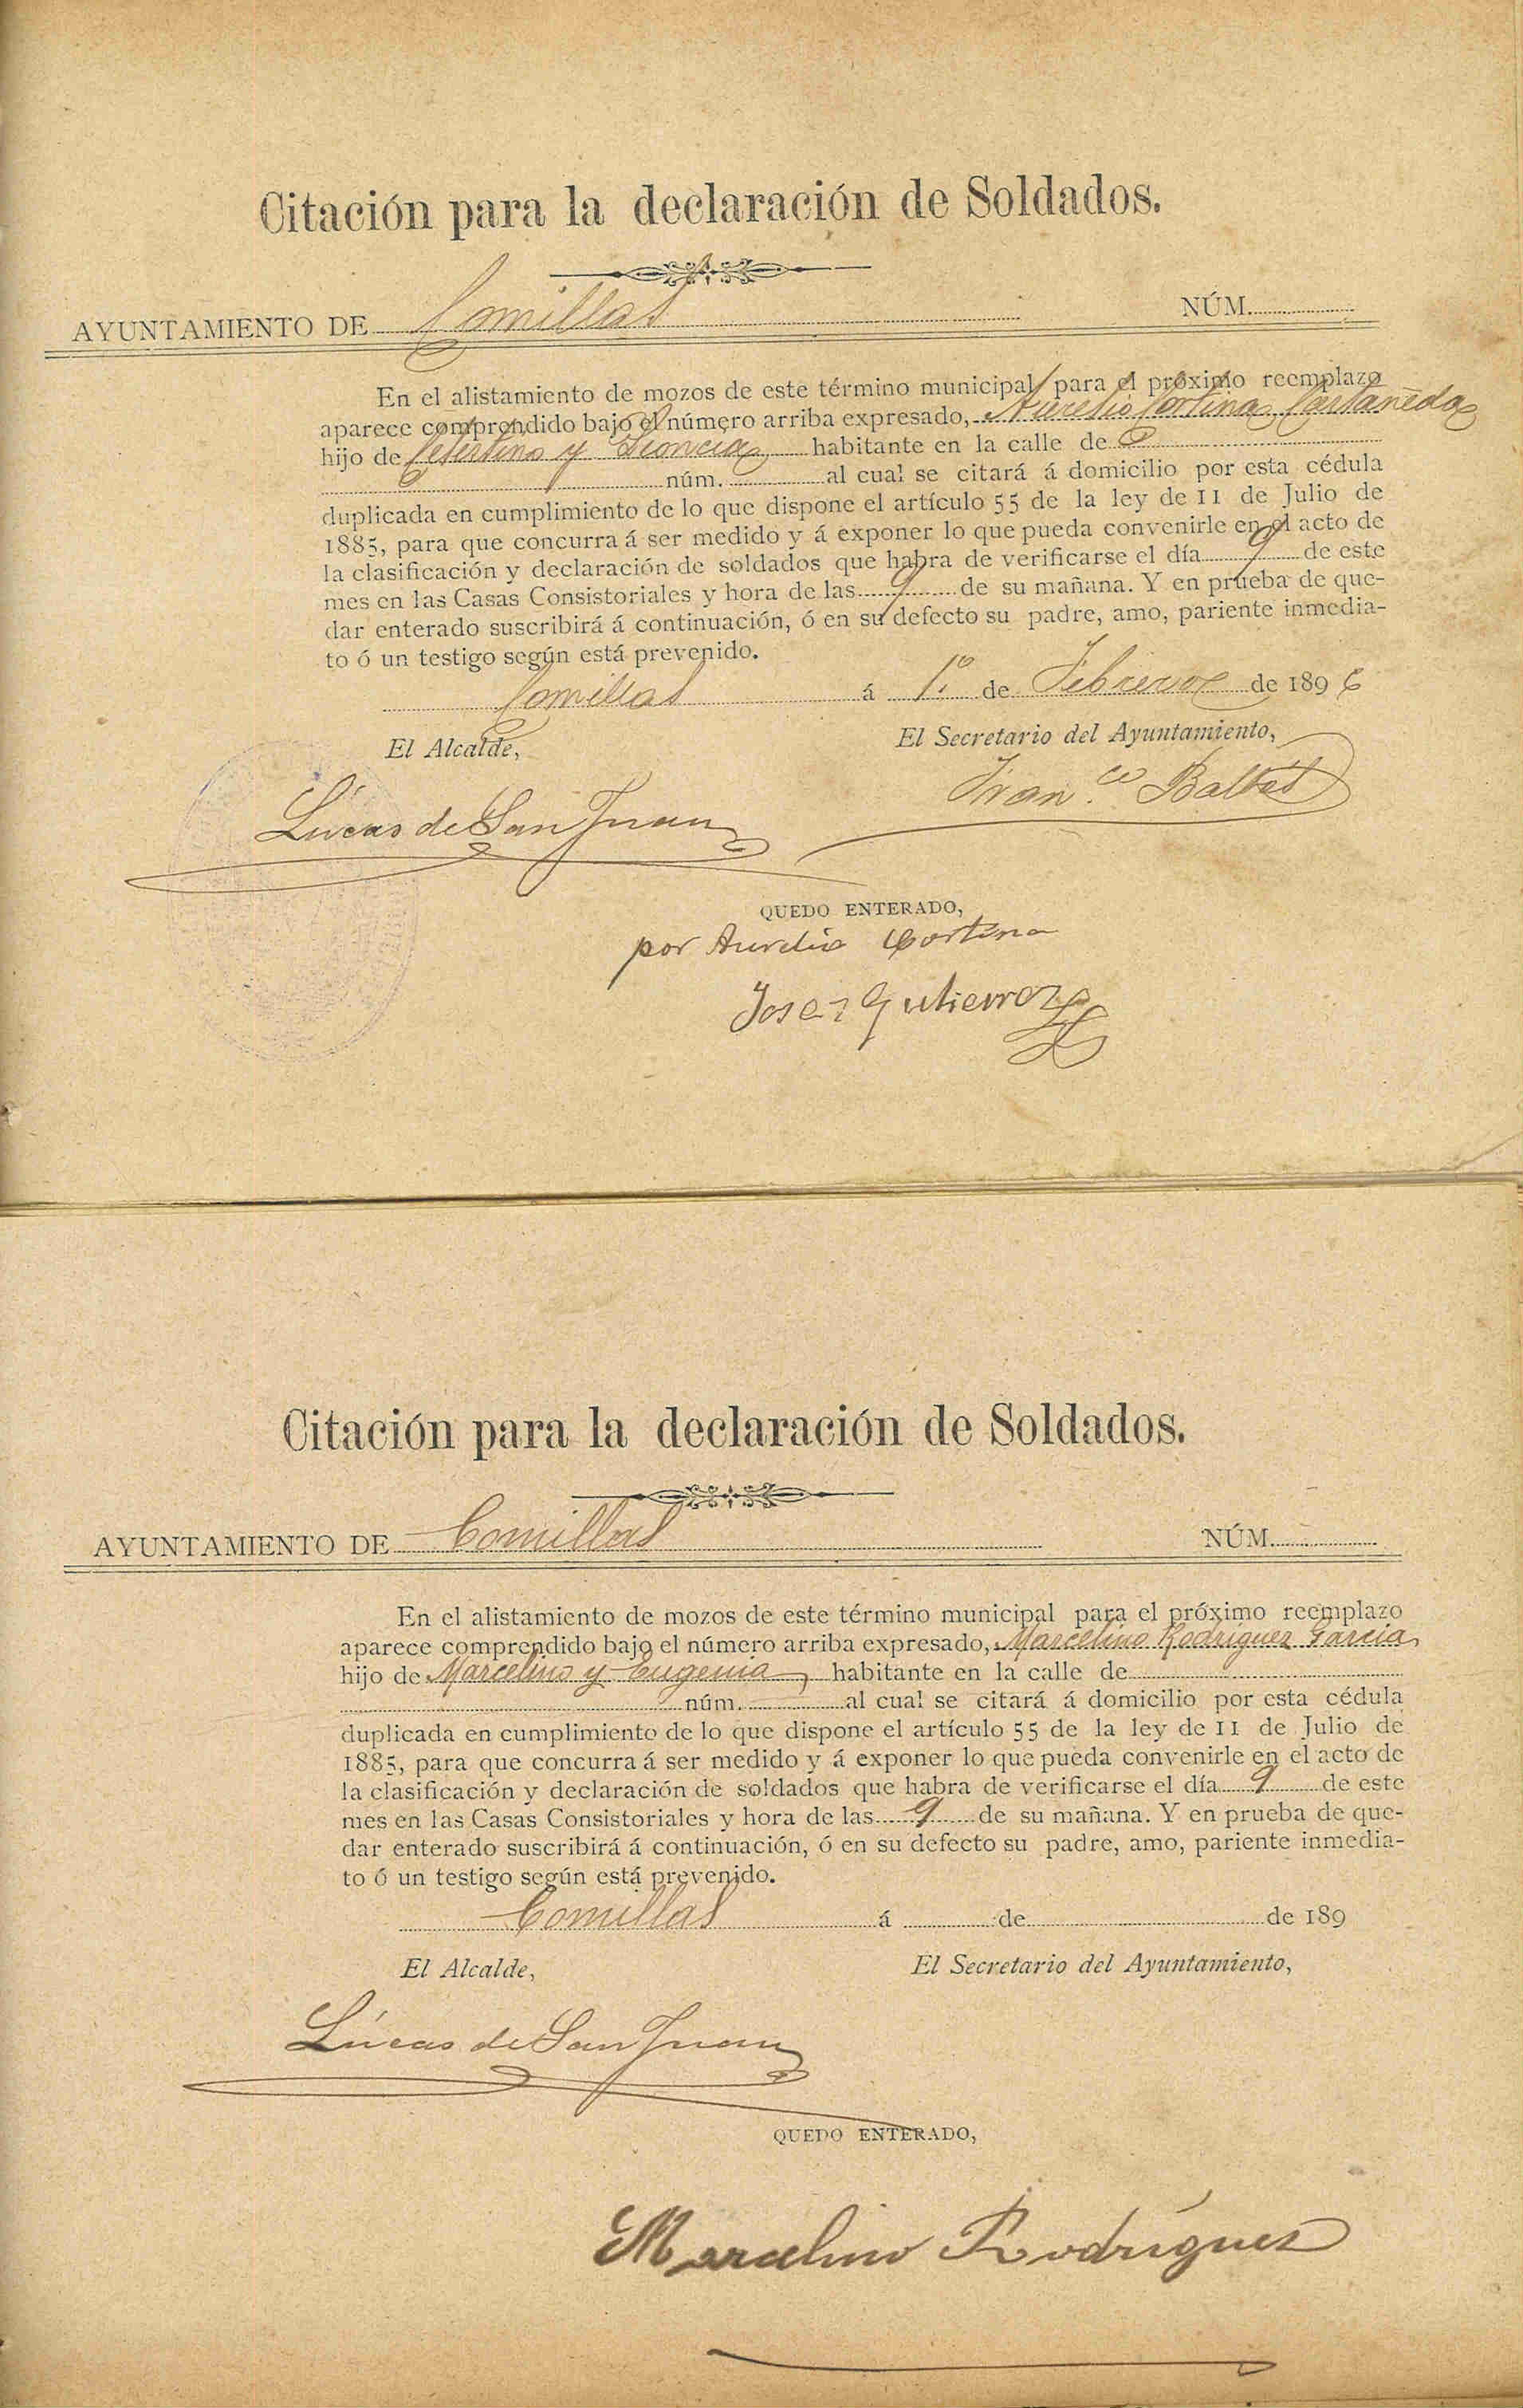 Citación para la declaración de Soldados.
AYUNTAMIENTO DE Comillas NÚM.
En el alistamiento de mozos de este término municipal para el próximo reemplazo
aparece comprendido bajo el número arriba expresado, Aurelio Cortina Castañeda
hijo de Celestino y Leoncia habitante en la calle de
núm. al cual se citará á domicilio por esta cédula
duplicada en cumplimiento de lo que dispone el artículo 55 de la ley de 11 de Julio de
1885, para que concurra á ser medido y á exponer lo que pueda convenirle en el acto de
la clasificación y declaración de soldados que habra de verificarse el día 9 de este
mes en las Casas Consistoriales y hora de las 9 de su mañana. Y en prueba de que-
dar enterado suscribirá á continuación, ó en su defecto su padre, amo, pariente inmedia-
to ó un testigo según está prevenido.
Comillas á 1.º de Febrero de 1896
El Alcalde, El Secretario del Ayuntamiento,
Lúcas de San Juan Fran.co Balbás
QUEDO ENTERADO,
por Aurelio Cortina
Jose Gutierrez
Citación para la declaración de Soldados.
AYUNTAMIENTO DE Comillas NÚM.
En el alistamiento de mozos de este término municipal para el próximo reemplazo
aparece comprendido bajo el número arriba expresado, Marcelino Rodriguez Garcia
hijo de Marcelino y Eugenia, habitante en la calle de
núm. al cual se citará á domicilio por esta cédula
duplicada en cumplimiento de lo que dispone el artículo 55 de la ley de 11 de Julio de
1885, para que concurra á ser medido y á exponer lo que pueda convenirle en el acto de
la clasificación y declaración de soldados que habra de verificarse el día 9 de este
mes en las Casas Consistoriales y hora de las 9 de su mañana. Y en prueba de que-
dar enterado suscribirá á continuación, ó en su defecto su padre, amo, pariente inmedia-
to ó un testigo según está prevenido.
Comillas á de de 189
El Alcalde, El Secretario del Ayuntamiento,
Lúcas de San Juan
QUEDO ENTERADO,
Marcelino Rodríguez